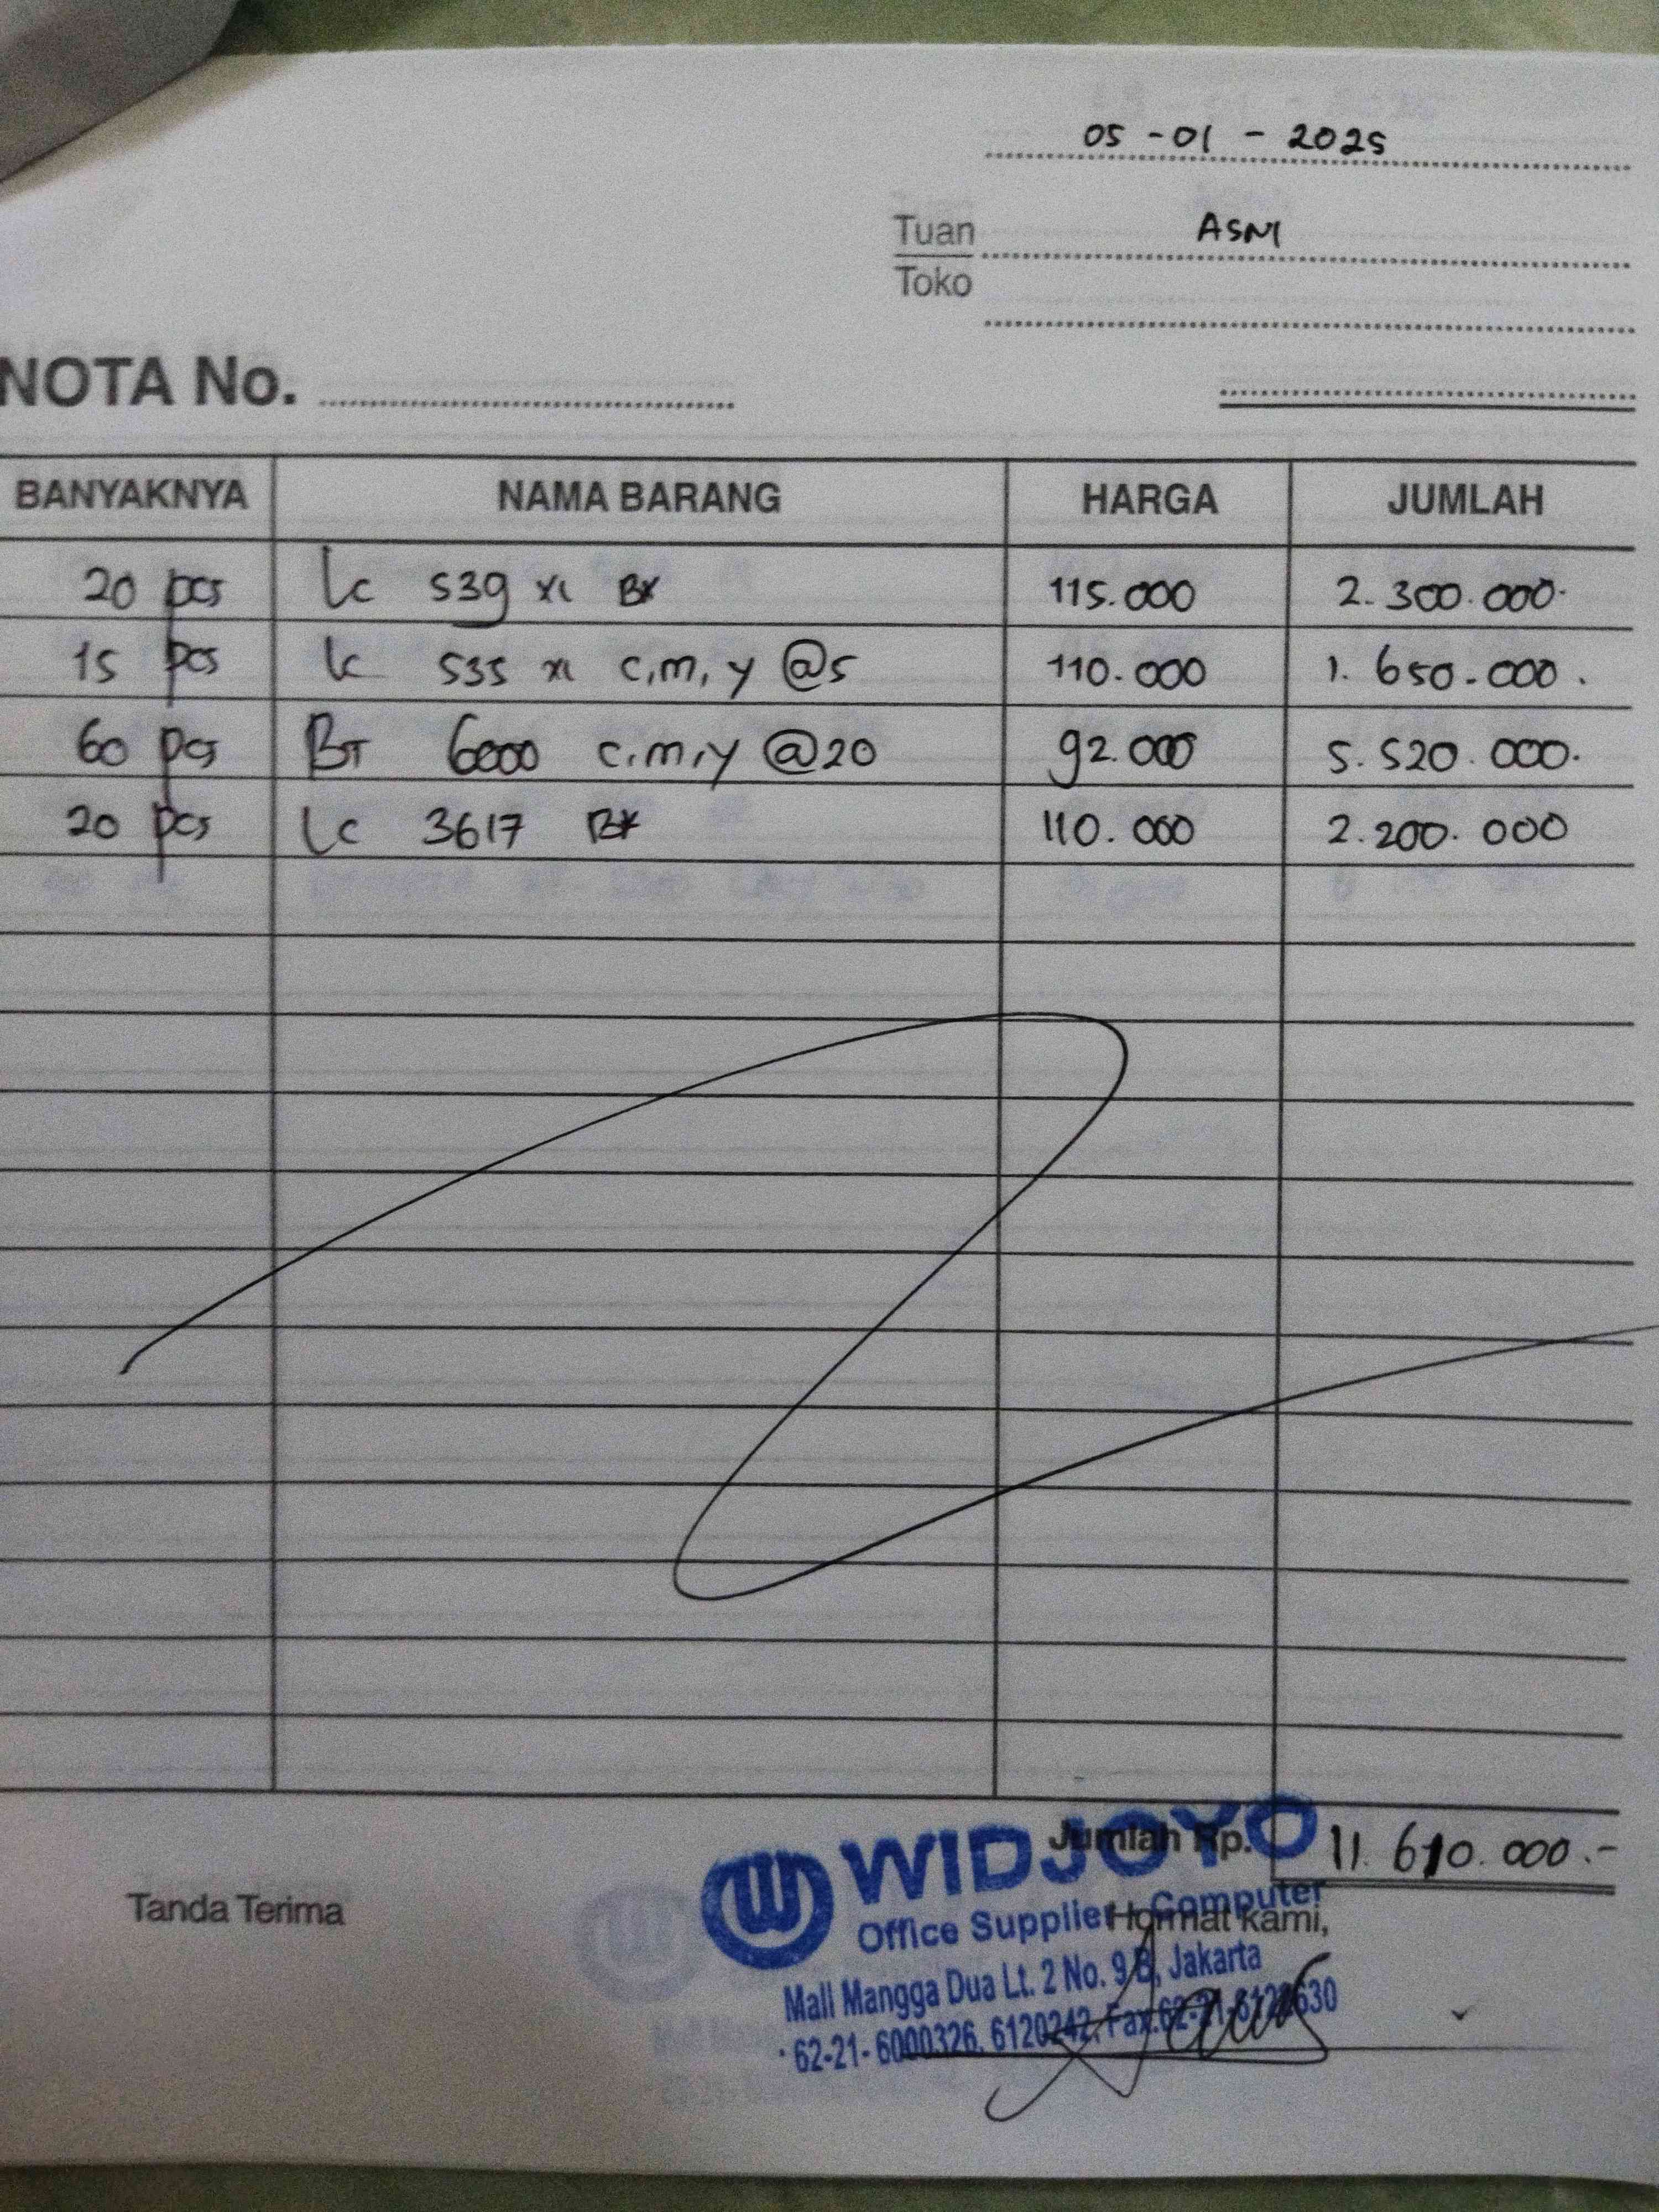 05 - 01 - 2025
Tuan ASNI
Toko
NOTA No.
BANYAKNYA NAMA BARANG HARGA JUMLAH
20 pcs lc 539 XL BK 115.000 2.300.000.
15 pcs lc 535 XL c,m,y @5 110.000 1.650.000.
60 pcs BT 6000 c,m,y @20 92.000 5.520.000.
20 pcs lc 3617 BK 110.000 2.200.000
Jumlah Rp. 11.670.000.-
WIDJOYO
Tanda Terima
Office Supplier - Computer
Hormat kami,
Mall Mangga Dua Lt. 2 No. 9 B, Jakarta
62-21- 6000326, 6120242, Fax.62-21-